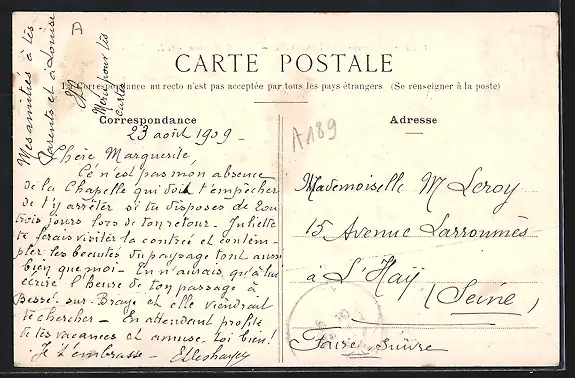 Mes amitiés à tes
parents et à Louise
A
Merci pour tes
cartes
CARTE POSTALE
La Correspondance au recto n'est pas acceptée par tous les pays étrangers (Se renseigner à la poste)
Correspondance
Adresse
23 août 1909 -
A189
Chère Marguerite,
Ce n'est pas mon absence
de la Chapelle qui doit t'empêcher
de t'y arrêter si tu disposes de 2 ou
trois jours lors de ton retour - Juliette
te ferais visiter la contrée et contem-
pler les beautés du paysage tout aussi
bien que moi - Tu n'aurais qu'à lui
écrire l'heure de ton passage à
Bessé-sur-Braye et elle viendrait
te chercher - En attendant profite
de tes vacances et amuse-toi bien!
Je t'embrasse -
Mademoiselle M Leroy
15 Avenue Larroumès
à L'Haÿ
(Seine)
Faire suivre